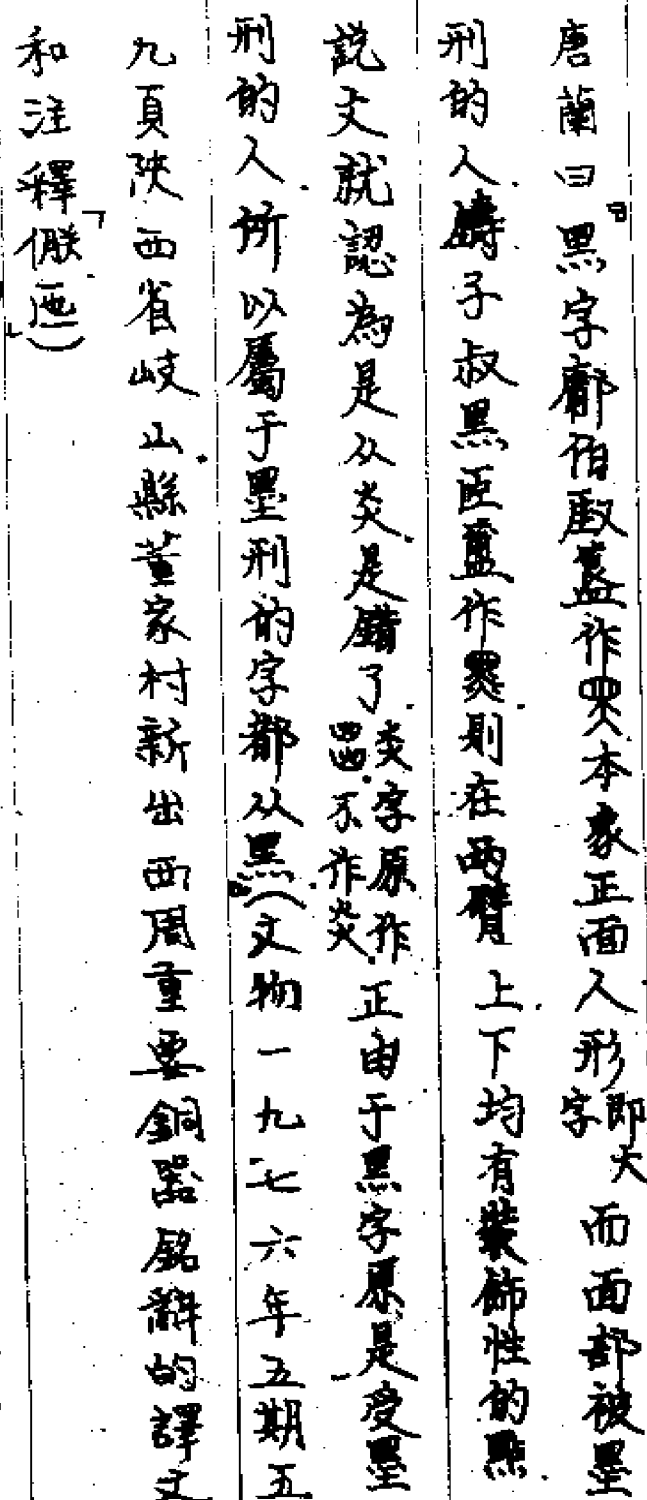 唐蘭曰黑字鄘伯𣪘蓋作本象正面人形即大字而面部被墨
刑的人鑄子叔黑臣簠作則在兩臂上下均有裝飾性的點
說文就認為是从炎是錯了炎字原作不作炎正由于黑字原是受墨
刑的人所以屬于墨刑的字都从黑（文物一九七六年五期五
九頁陝西省岐山縣董家村新出西周重要銅器銘辭的譯文
和注釋